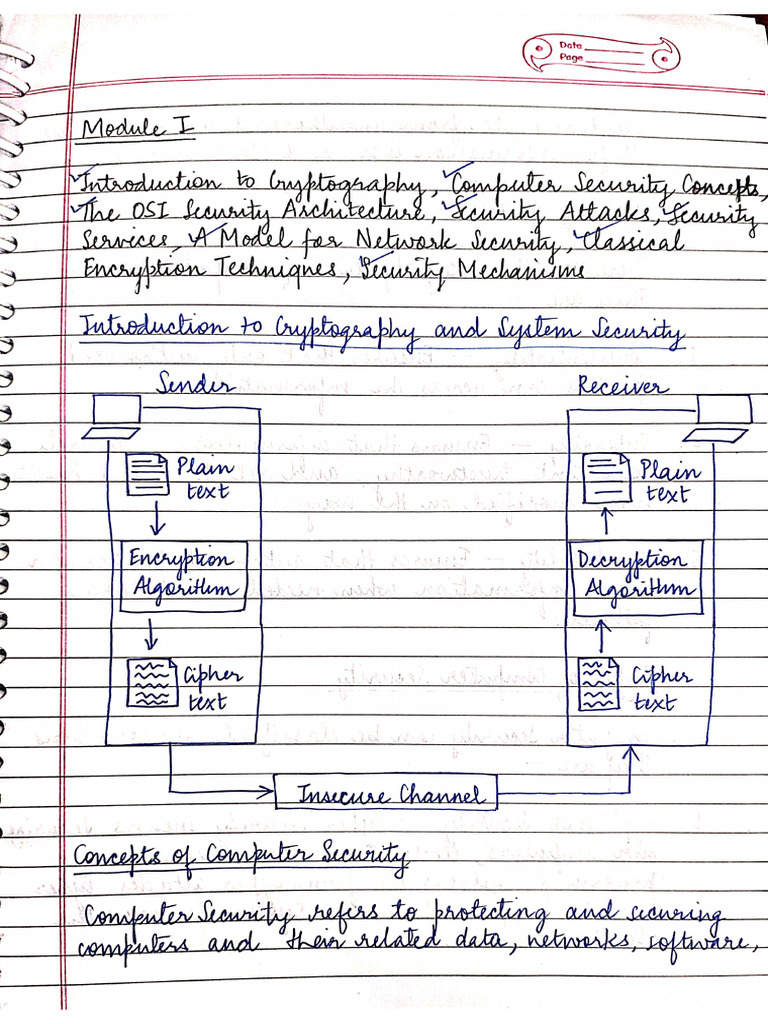 Date
Page
Module I
Introduction to Cryptography, Computer Security Concepts,
The OSI Security Architecture, Security Attacks, Security
Services, A Model for Network Security, Classical
Encryption Techniques, Security Mechanisms
Introduction to Cryptography and System Security
Sender
Receiver
Plain
text
Plain
text
Encryption
Algorithm
Decryption
Algorithm
Cipher
text
Cipher
text
Insecure Channel
Concepts of Computer Security
Computer Security refers to protecting and securing
computers and their related data, networks, software,